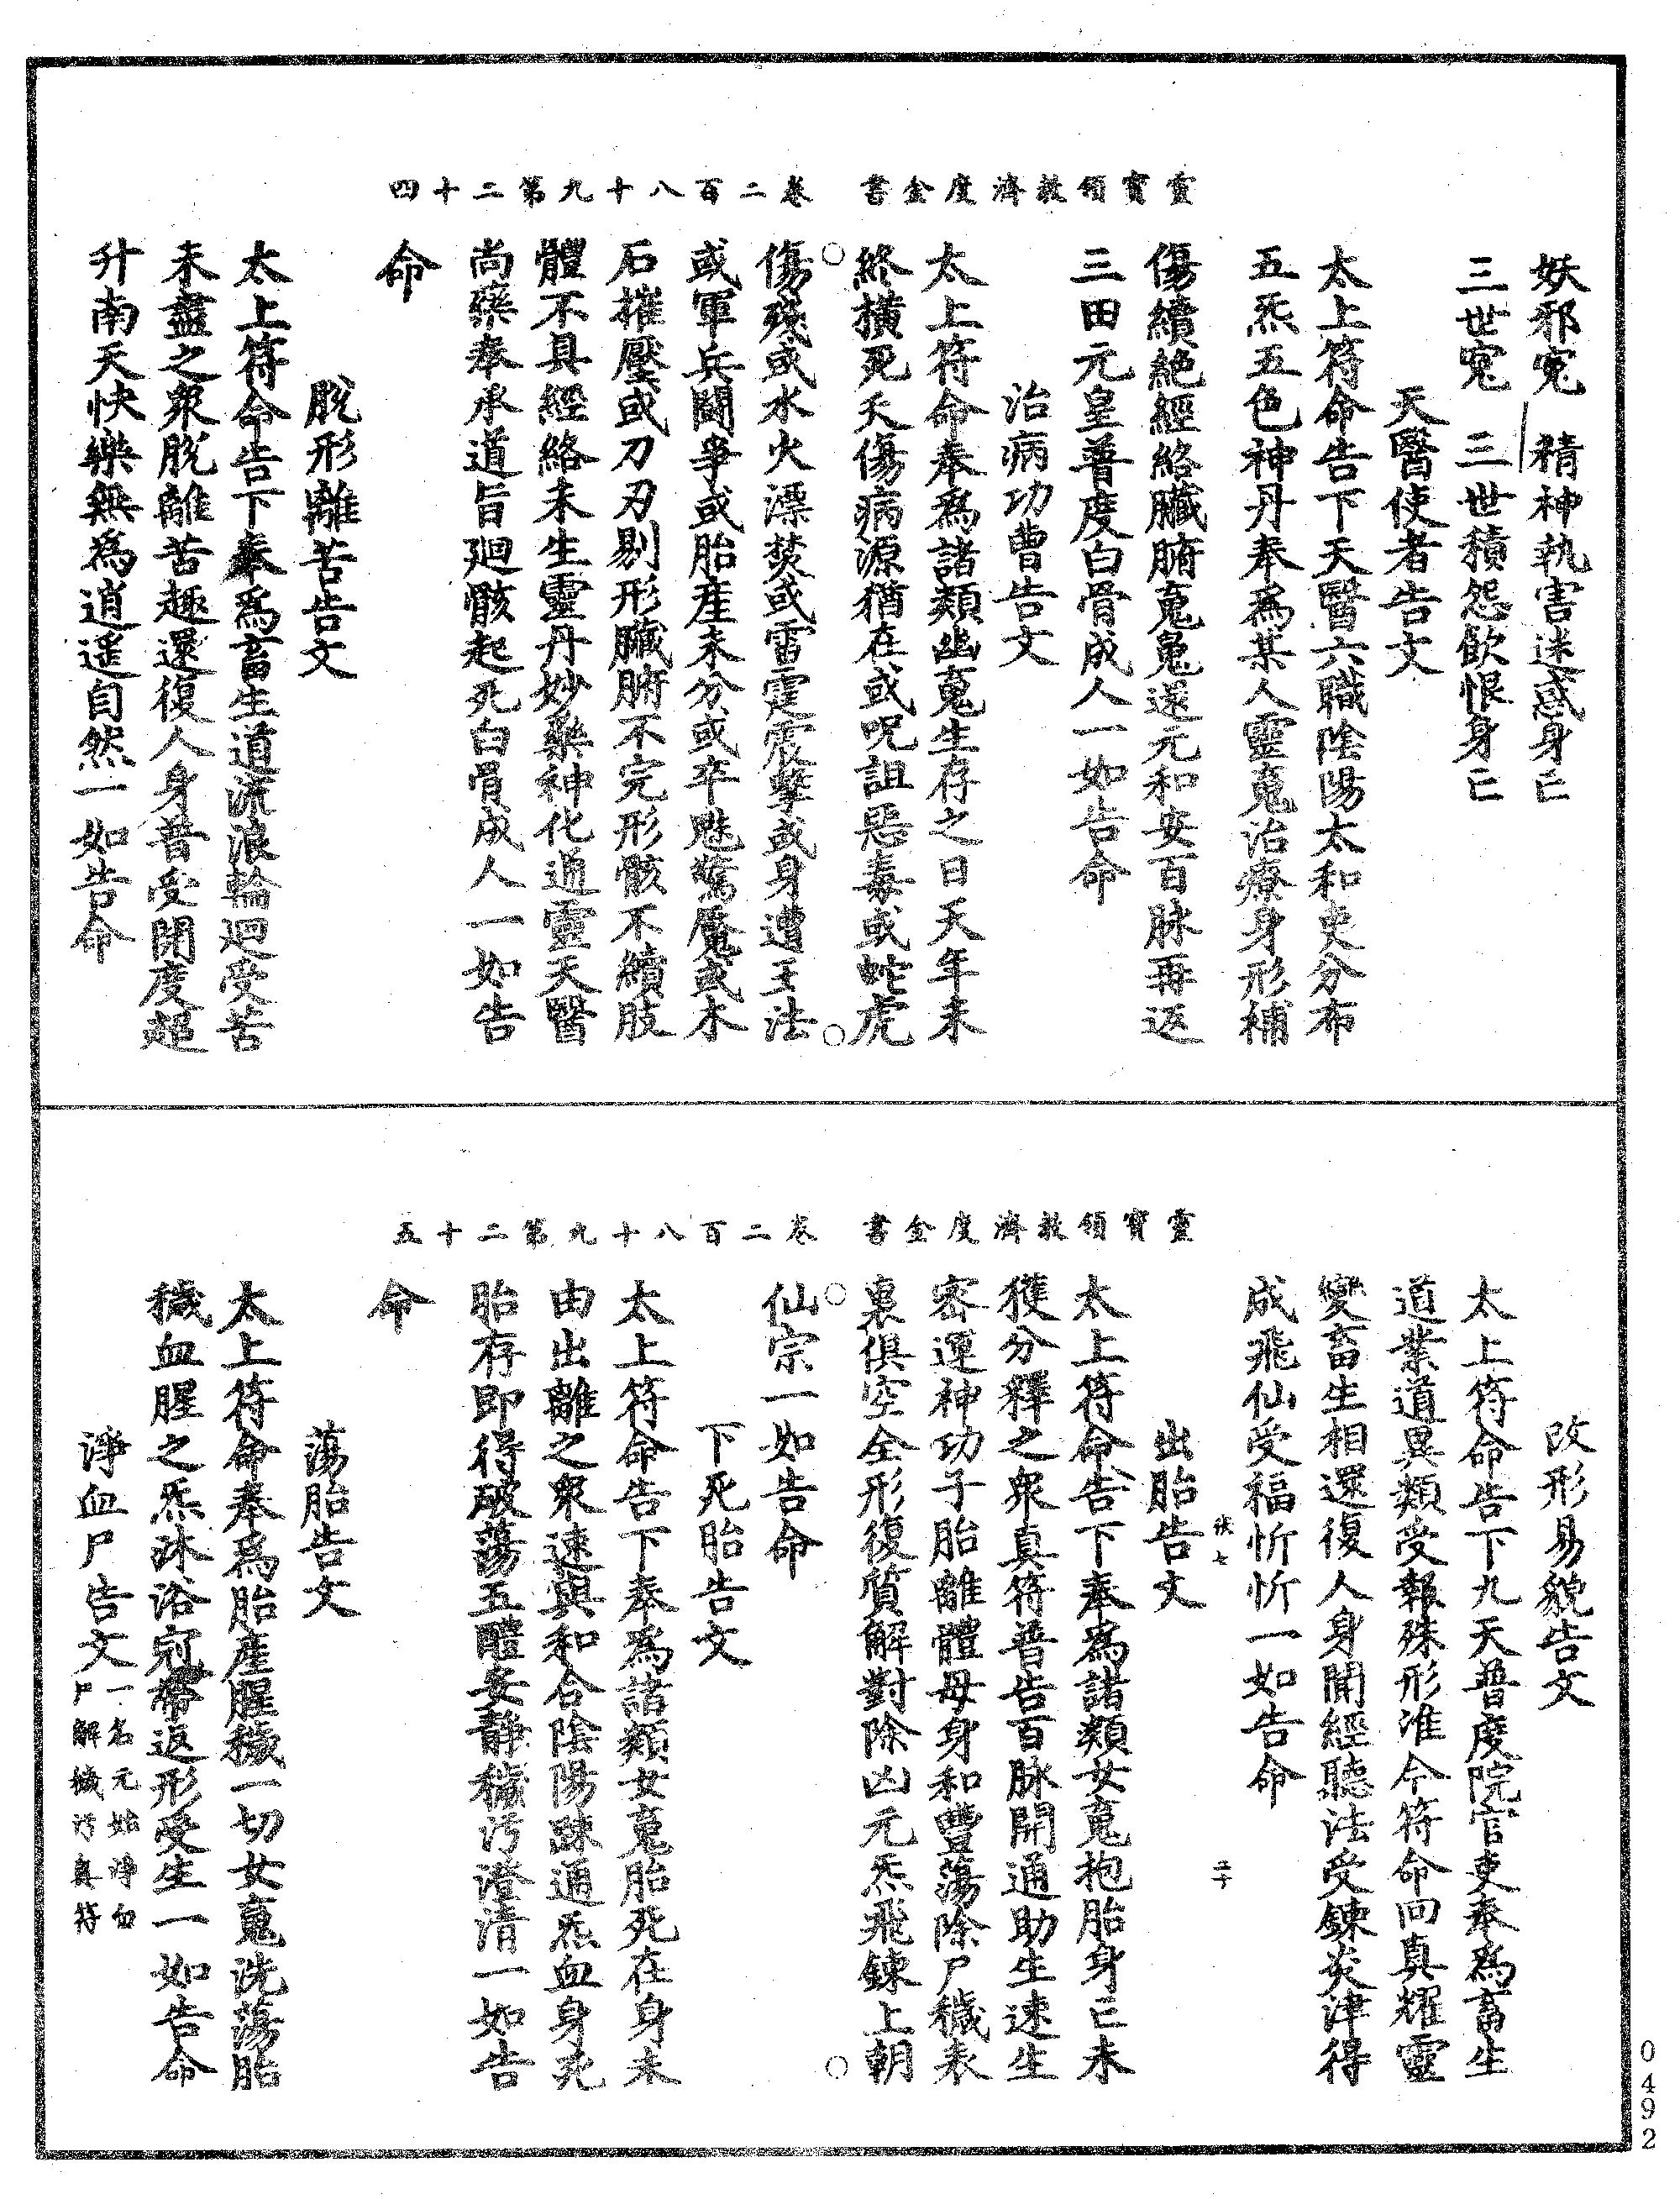 靈寶領教濟度金書　卷二百八十九第二十四
妖邪寃　精神執害迷惑身亡
三世寃　三世積怨飲恨身亡
天醫使者告文
太上符命告下天醫六職陰陽太和吏分布
五炁五色神丹奉爲某人靈䰟治療身形補
傷續絶經絡臟腑䰟䰟還元和安百脉再返
三田元皇普度白骨成人一如告命
治病功曹告文
太上符命奉爲諸類幽䰟生存之日天年未
終横死夭傷病源猶在或呪詛惡毒或蛇虎
傷殘或水火漂焚或雷霆震擊或身遭王法
或軍兵鬬爭或胎産未分或卒魅驚魘或木
石摧壓或刀刃剔形臟腑不完形骸不續肢
體不具經絡未生靈丹妙藥神化通靈天醫
尚藥奉承道旨廻骸起死白骨成人一如告
命
脫形離苦告文
太上符命告下奉爲畜生道流浪輪迴受苦
未盡之衆脫離苦趣還復人身普受開度超
升南天快樂無爲逍遥自然一如告命
靈寶領教濟度金書　卷二百八十九第二十五
改形易貌告文
太上符命告下九天普度院官吏奉爲畜生
道業道異類受報殊形准今符命回真耀靈
變畜生相還復人身聞經聽法受鍊炎津得
成飛仙受福忻忻一如告命
出胎告文
太上符命告下奉爲諸類女䰟抱胎身亡未
獲分釋之衆真符普告百脉開通助生速生
密運神功子胎離體母身和豐蕩除尸穢表
裏俱空全形復質解對除凶元炁飛鍊上朝
仙宗一如告命
下死胎告文
太上符命告下奉爲諸類女䰟胎死在身未
由出離之衆速與和合陰陽踈通炁血身死
胎存即得破蕩五體安靜穢污澄清一如告
命
蕩胎告文
太上符命奉爲胎産腥穢一切女䰟洗蕩胎
穢血腥之炁沐浴冠帶返形受生一如告命
淨血尸告文一名元始淨血
尸解穢污真符
二十
0492